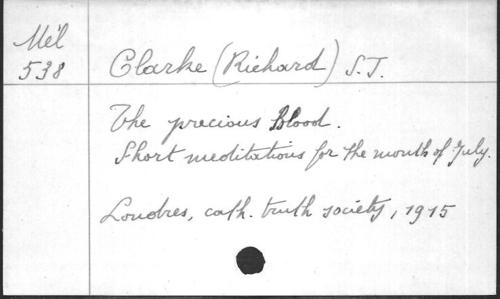 Mél
538
Clarke (Richard) S.J.
The precious Blood.
Short meditations for the month of July.
Londres, cath. truth society, 1915